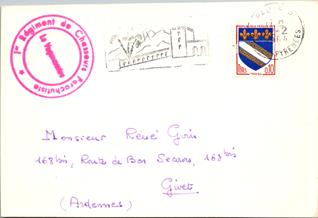 1er Régiment de Chasseurs Parachutistes
Le Vaguemestre
TROYES
0,10
Monsieur René Goris
168 bis, Route de Bon Secours, 168 bis
Givet
(Ardennes)